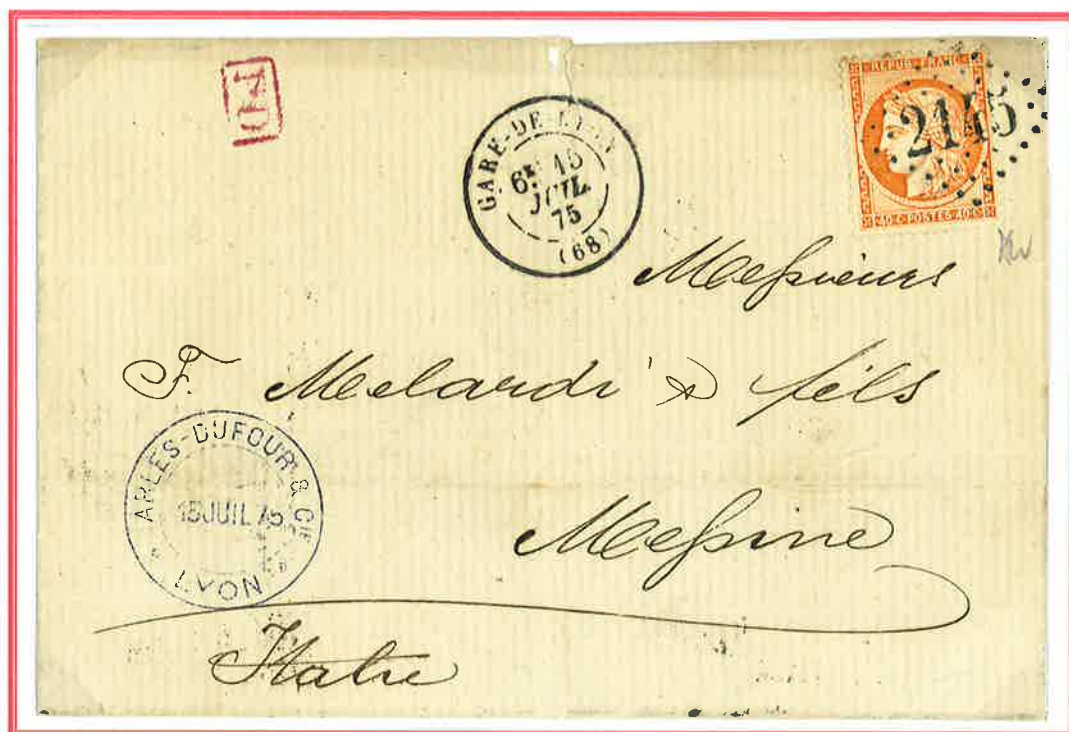 PD
GARE-DE-LYON
6E 15
JUIL
75
(68)
REPUB·FRANC
2145
40·C·POSTES·40·C
Messieurs
F. Melardi & fils
ARLÈS-DUFOUR & CIE
15 JUIL 75
LYON
Messine
Italie